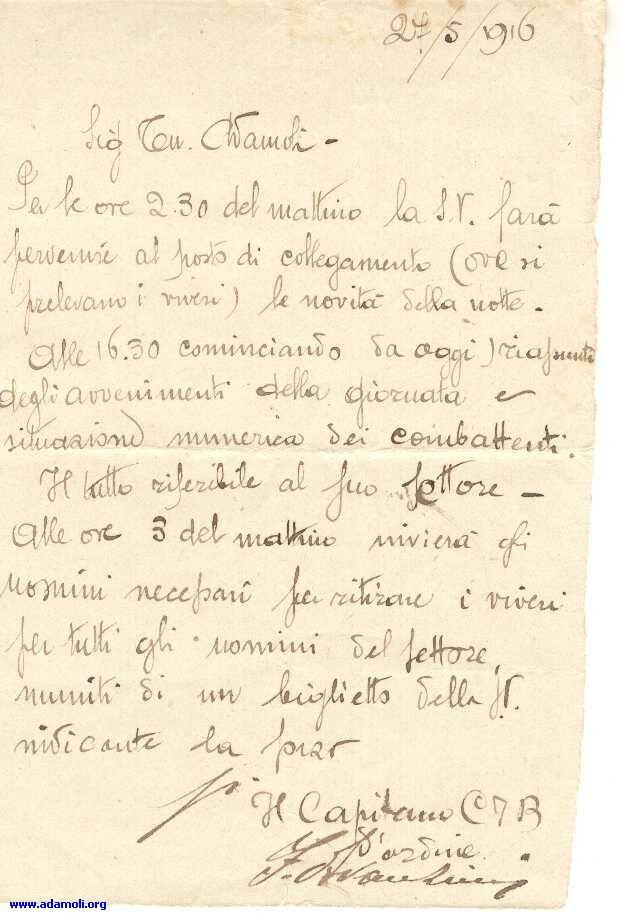 27/5/916
Sig Ten. Adamoli -
Per le ore 2.30 del mattino la S.V. farà
pervenire al posto di collegamento (ove si
prelevano i viveri) le novità della notte -
Alle 16.30 cominciando da oggi) riassunto
degli avvenimenti della giornata e
situazione numerica dei combattenti.
Il tutto riferibile al suo settore -
Alle ore 3 del mattino invierà gli
uomini necessari per ritirare i viveri
per tutti gli uomini del settore,
muniti di un biglietto della S.V.
indicante la
Il Capitano C 7 B
d'ordine
www.adamoli.org